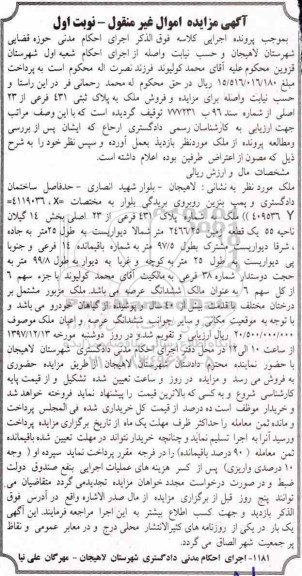 آگهی مزایده اموال غیر منقول - نوبت اول
بموجب پرونده اجرایی کلاسه فوق الذکر اجرای احکام مدنی حوزه قضایی
شهرستان لاهیجان و حسب نیابت واصله از اجرای احکام شعبه اول شهرستان
قزوین محکوم علیه آقای محمد کولیوند فرزند نصرت اله محکوم است به پرداخت
مبلغ ۱۵/۵۱۶/۰۱۶/۱۸۰ ریال در حق محکوم له محمد رحمانی فر در این راستا و
حسب نیابت واصله برای مزایده و فروش ملک به پلاک ثبتی ۴۳۱ فرعی از ۲۳
اصلی از شماره سند ۹۶ ب ۷۷۷۲۳۱ توقیف گردیده است که با این وصف مراتب
جهت ارزیابی به کارشناسان رسمی دادگستری ارجاع که ایشان پس از بررسی
ومطالعه پرونده از ملک موردنظر بازدید بعمل آورده و سپس نظر خود را به شرح
ذیل که مصون از اعتراض طرفین بوده اعلام داشته است.
مشخصات مال و ارزش ریالی
ملک مورد نظر به نشانی : لاهیجان - بلوار شهید انصاری - حدفاصل ساختمان
دادگستری و پمپ بنزین روبروی بریدگی بلوار به مختصات X=۴۱۱۹۰۳۶،
۴۰۹۵۳۶ Y)) ملک به شماره پلاک ۴۳۱ فرعی از ۲۳ اصلی بخش ۱۴ گیلان
ناحیه ۵۵ یک قطعه زمین ۲۴۶۶/۲۵ متر شمالا دیواریست به طول ۲۵متر به جاده
، شرقا دیواریست مشترک بطول ۹۷/۵ متر به شماره باقیمانده ۱۴ فرعی و جنوبا
پی دیواریست به طول ۲۵ متر به کوچه و غربا به دیوار به طول ۹۹/۸ متر به
حجت دوستدار شماره ۳۸ فرعی به مالکیت آقای محمد کولیوند با جزء سهم ۶
از کل سهم ۶ به عنوان مالک ششدانگ عرصه می باشد.ملک مزبور مشتمل بر
درختان مختلف با قدمت بیش از ۴۰ سال و پوشیده از گیاهان خودرو می باشد و
با توجه به موقعیت مکانی و سایر جوانب ششدانگ عرصه و اعیان ملک موصوف
۲۰/۵۰۰/۰۰۰/۰۰۰ ریال ارزیابی و تقویم شد.و در روز دوشنبه مورخه ۱۳۹۷/۱۲/۱۳
از ساعت ۱۰ الی ۱۲ در محل دفتر اجرای احکام مدنی دادگستری شهرستان لاهیجان
با حضور نماینده محترم دادستان شهرستان لاهیجان از طریق مزایده حضوری
به فروش می رسد و مزایده در روز و ساعت تعیین شده تشکیل و از قیمت پایه
کارشناسی شروع و به کسی که بالاترین قیمت را پیشنهاد نماید فروخته خواهد شد
و خریدار موظف است ده درصد از قیمت کل خریداری شده فی المجلس پرداخت
و مانده ثمن معامله را حداکثر ظرف مهلت یک ماه از تاریخ برگزاری مزایده پرداخت
ورسید آنرا به اجرا تسلیم نماید و چنانچه خریدار نتواند در مهلت تعیین شده باقیمانده
ثمن معامله ( ۹۰ درصد باقیمانده) را در فرجه مقرر پرداخت نماید سپرده او ( وجه
۱۰ درصدی واریزی) پس از کسر هزینه های عملیات اجرایی بنفع صندوق دولت
ضبط و در صورت درخواست مجدد خواهان مزایده تجدیدمی گردد متقاضیان می
توانند پنج روز قبل از برگزاری مزایده از مال صدر الاشاره واقع در آدرس فوق
الذکر بازدید و جهت کسب اطلاع بیشتر به این اجرا مراجعه فرمایند. این آگهی
یک بار در یکی از روزنامه های کثیرالانتشار محلی درج و در معابر عمومی و نقاط
پر جمعیت شهر الصاق می گردد.
۱۱۸۱- اجرای احکام مدنی دادگستری شهرستان لاهیجان - مهرگان علی نیا